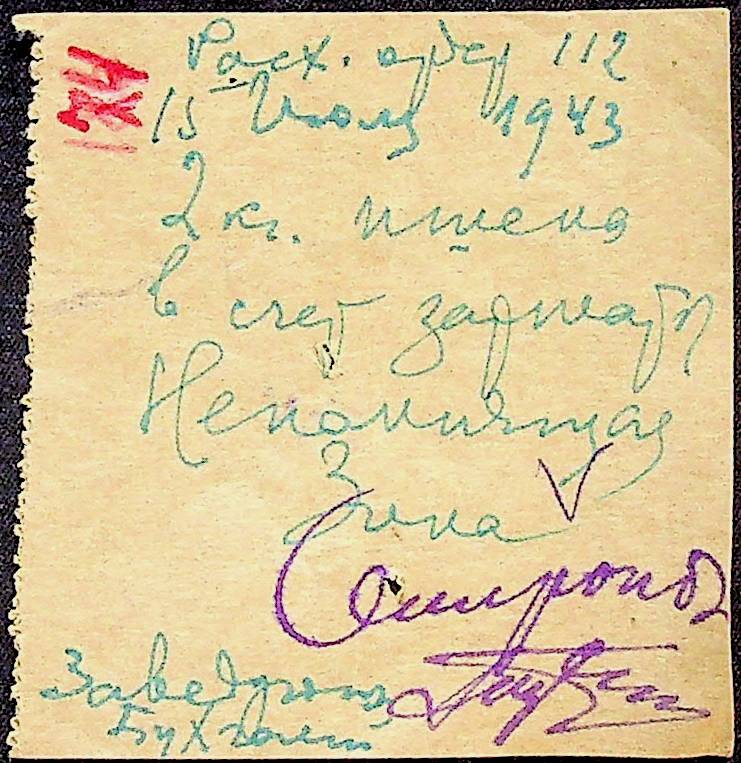 174
Расх. ордер 112
15 Июля 1943
2 кг. пшена
в счет зарплаты
Непомнящая
Зина
Смирнов
Заведующ
Бухгалт